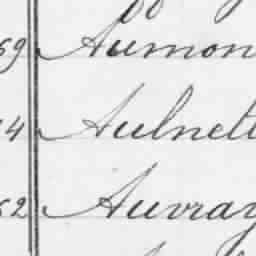 69 Aumon
14 Aulnett
52 Auvray